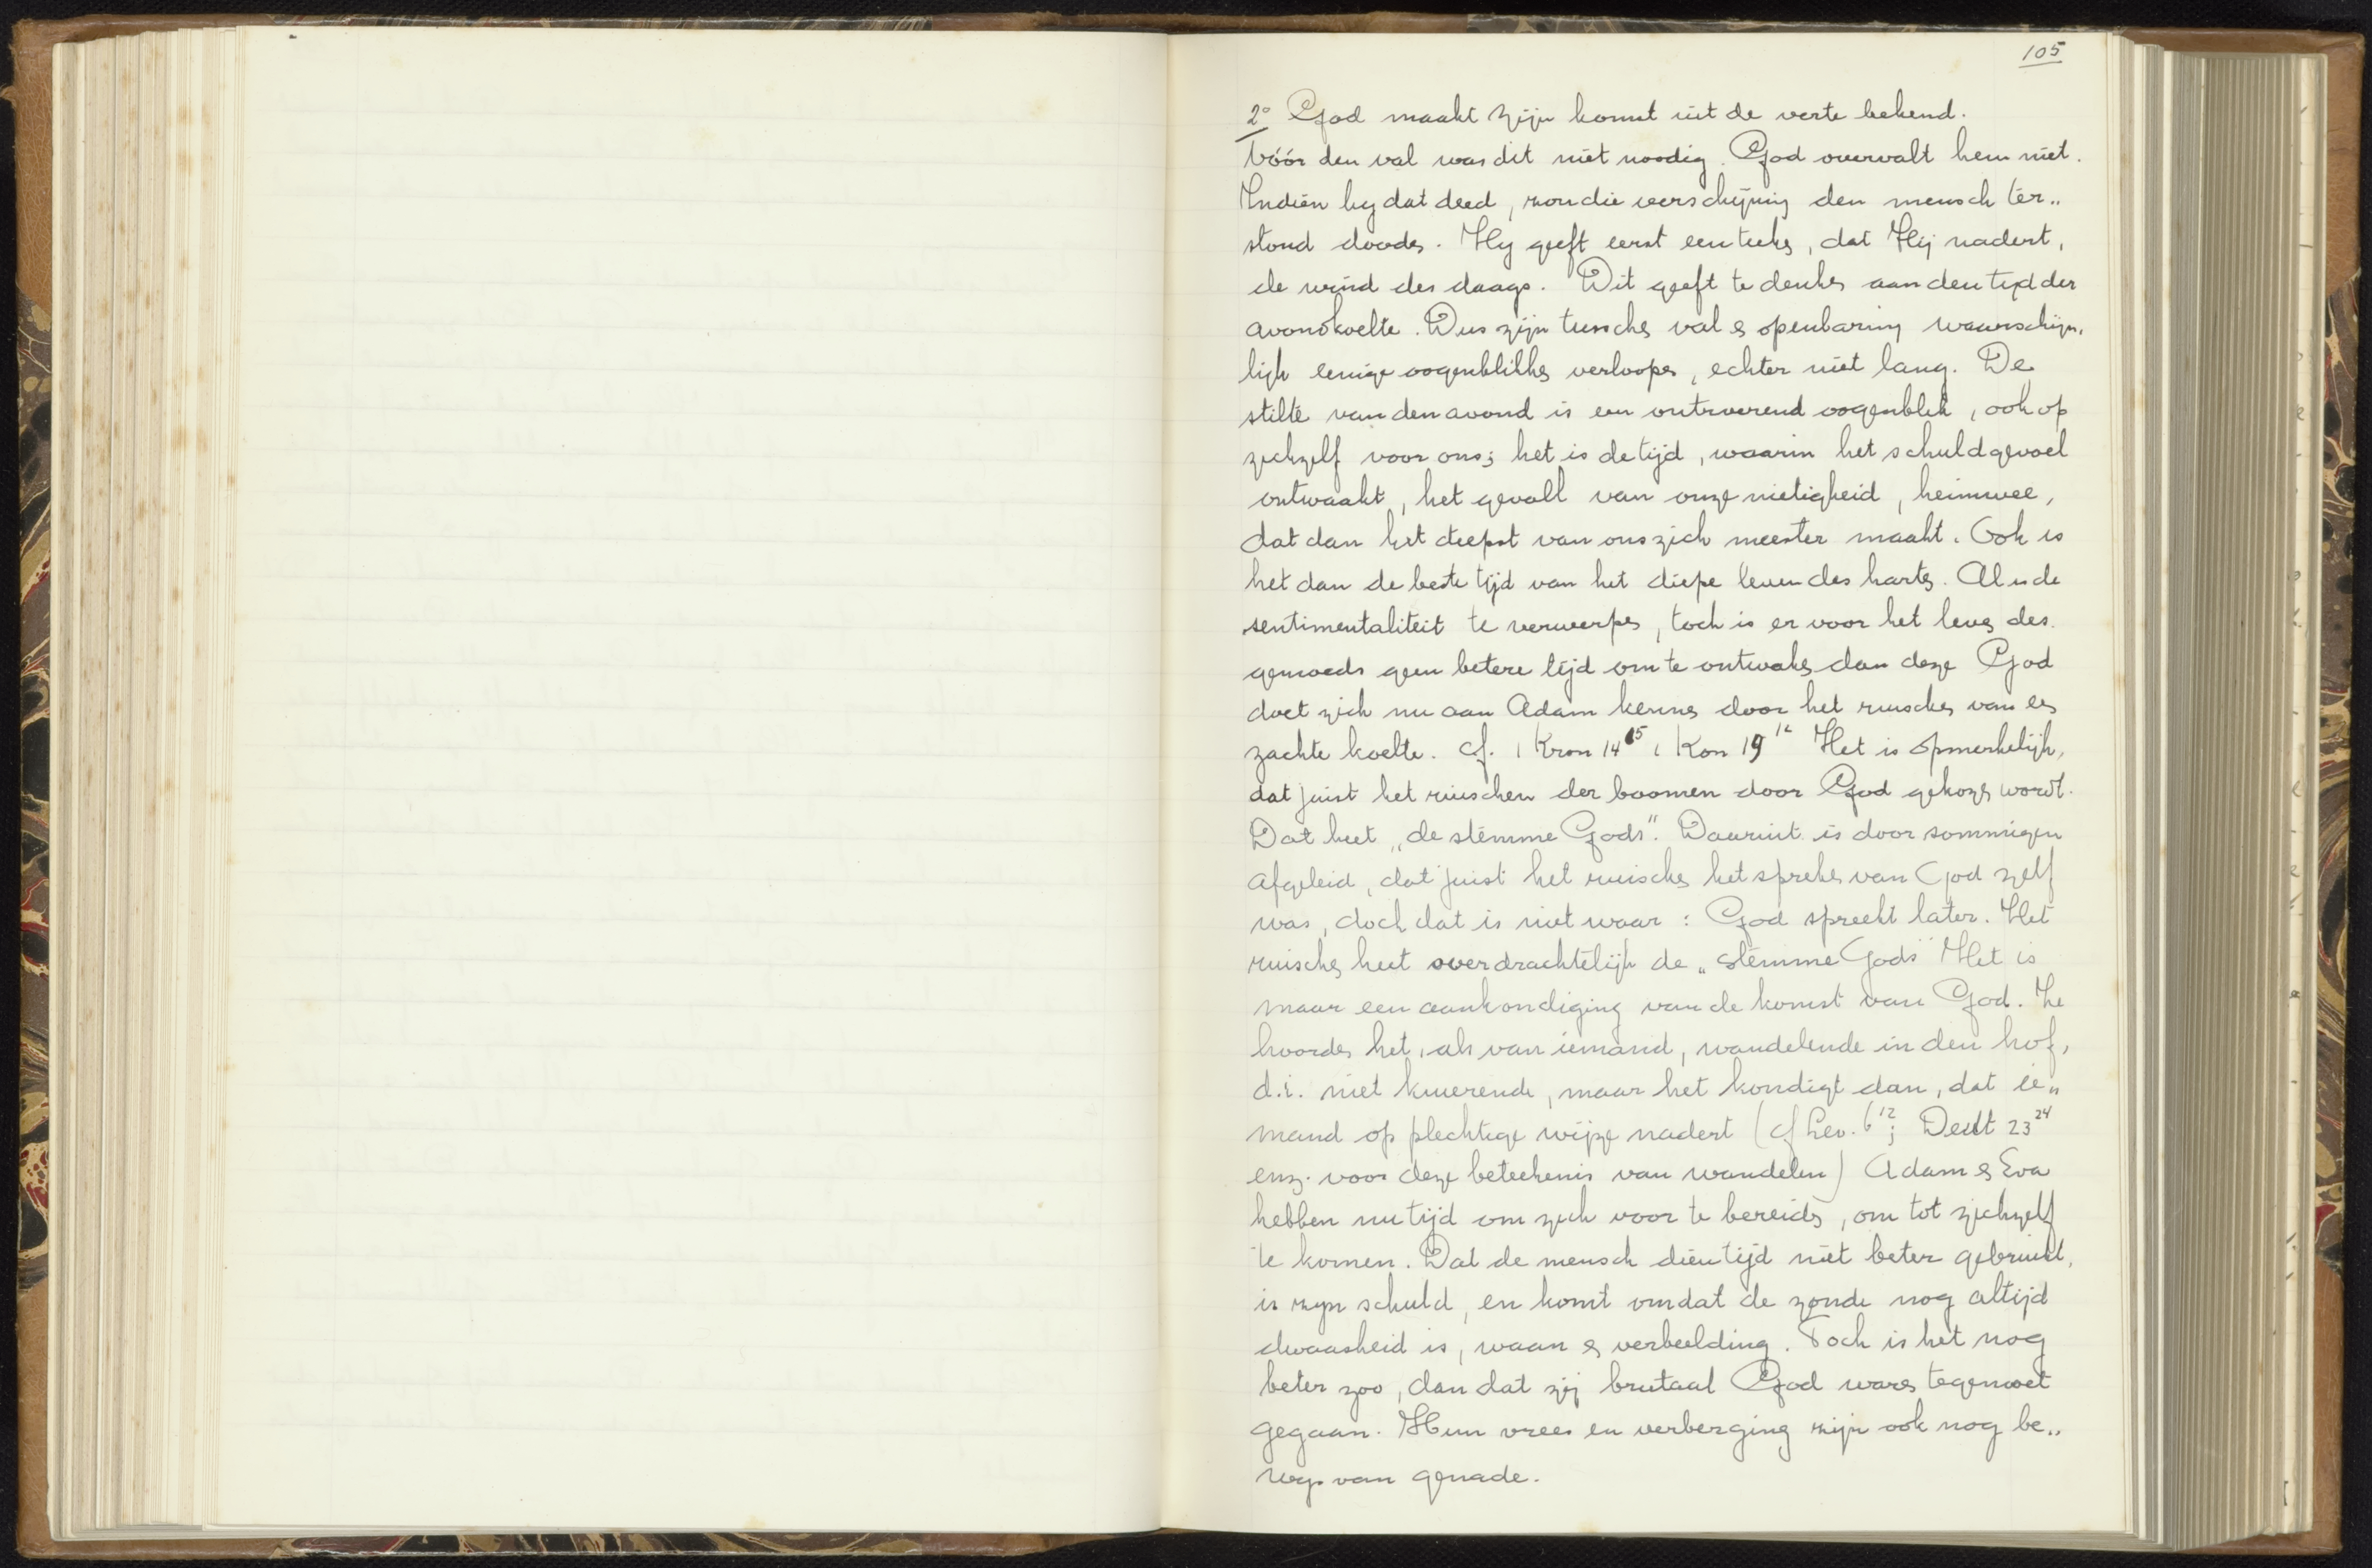 105
2° God maakt zijn komst uit de verte bekend.
Vóór den val was dit niet noodig. God overvalt hem niet.
Indien hij dat deed, zou die verschijning den mensch ter„
stond dooden. Hij geeft eerst een teeken, dat Hij nadert,
de wind des daags. Dit geeft te denken aan den tijd der
avondkoelte. Dus zijn tusschen val en openbaring waarschijn„
lijk eenige oogenblikken verloopen, echter niet lang. De
stilte van den avond is een ontroerend oogenblik, ook op
zichzelf voor ons; het is de tijd, waarin het schuldgevoel
ontwaakt, het gevoel van onze nietigheid, heimwee,
dat dan het diepst van ons zich meester maakt. Ook is
het dan de beste tijd van het diepe leven des harten. Al is de
sentimentaliteit te verwerpen, toch is er voor het leven des
gemoeds geen betere tijd om te ontwaken dan deze God
doet zich nu aan Adam kennen door het ruischen van een
zachte koelte. Cf. 1 Kron 14 15 1 Kon 19 12 Het is opmerkelijk,
dat juist het ruischen der boomen door God gekozen wordt.
Dat heet „de stemme Gods". Daaruit is door sommigen
afgeleid, dat juist het ruischen het spreken van God zelf
was, doch dat is niet waar: God spreekt later. Het
ruischen heet overdrachtelijk de „stemme Gods" Het is
maar een aankondiging van de komst van God. Ze
hoorden het, als van iemand, wandelende in den hof,
d.i. niet kuierende, maar het kondigt aan, dat ie„
mand op plechtige wijze nadert (cf Lev. 6 12; Deut 23 24
enz. voor deze beteekenis van wandelen) Adam en Eva
hebben nu tijd om zich voor te bereiden, om tot zichzelf
te komen. Dat de mensch dien tijd niet beter gebruikt,
is zijn schuld, en komt omdat de zonde nog altijd
dwaasheid is, waan en verbeelding. Toch is het nog
beter zoo, dan dat zij brutaal God waren tegemoet
gegaan. Hun vrees en verberging zijn ook nog be„
wijs van genade.